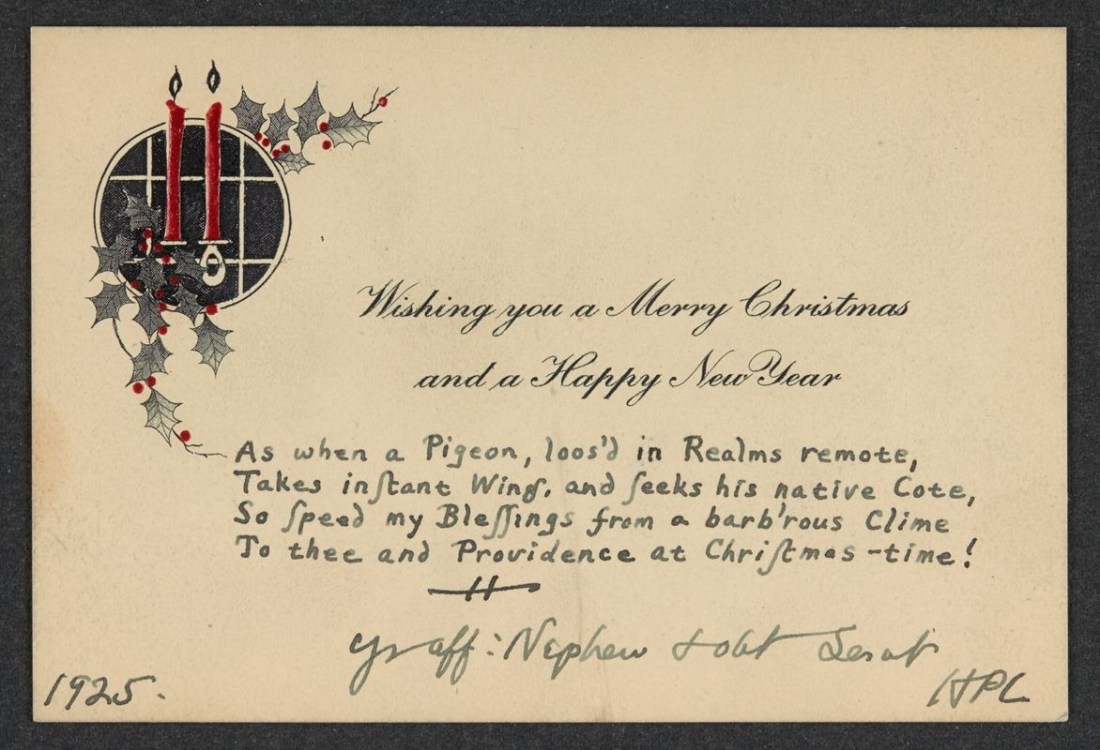 Wishing you a Merry Christmas
and a Happy New Year
As when a Pigeon, loos'd in Realms remote,
Takes inſtant Wing, and ſeeks his native Cote,
So ſpeed my Bleſſings from a barb'rous Clime
To thee and Providence at Chriſtmas-time!
Yr aff: Nephew & obt Servt
1925.
HPL